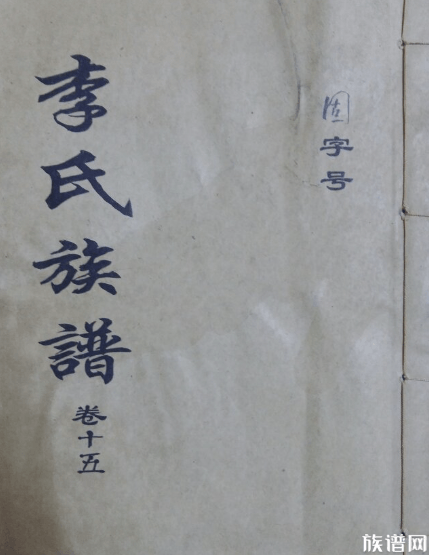 字号
李氏族譜 卷十五
族谱网